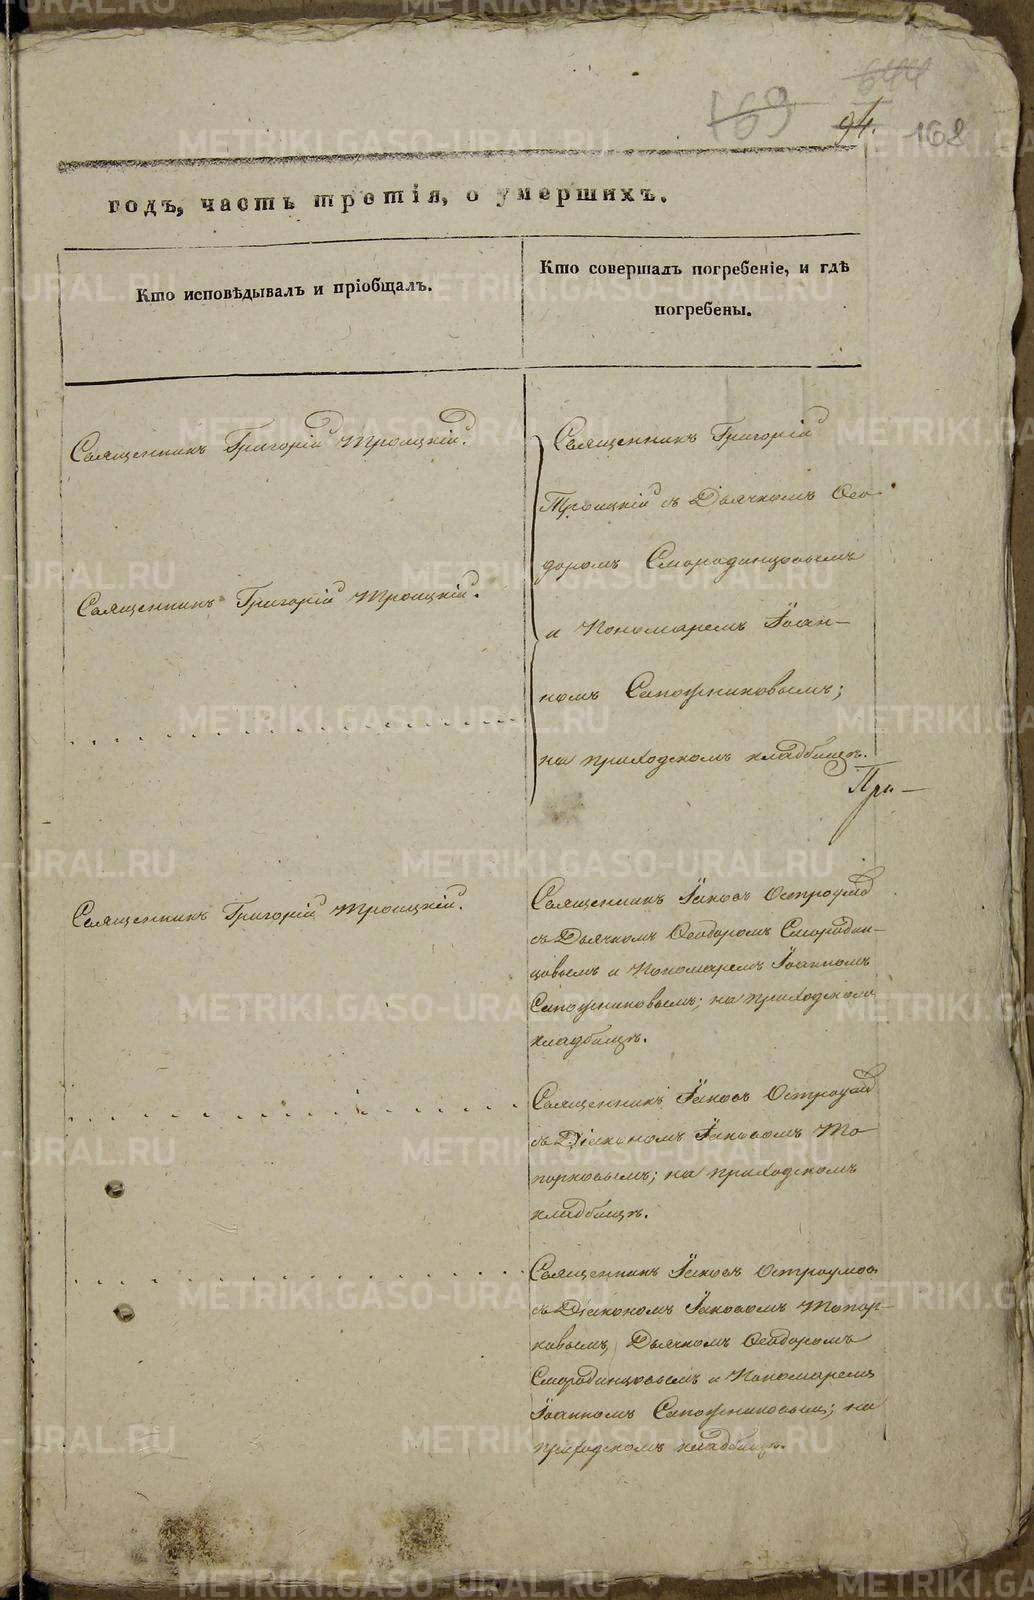 644
169
94.
168
годъ, часть третія, о умершихъ.
Кто исповѣдывалъ и пріобщалъ.
Кто совершалъ погребеніе, и гдѣ
погребены.
Священникъ Григорій Троицкій.
Священникъ Григорій
Троицкій съ Дьячкомъ Ѳео-
доромъ Смородинцовымъ
Священникъ Григорій Троицкій.
и Пономаремъ Іоан-
номъ Сапожниковымъ;
на приходскомъ кладбищѣ.
При-
Священникъ Григорій Троицкій.
Священникъ Іаковъ Остроумовъ
съ Дьячкомъ Ѳеодоромъ Смородин-
цовымъ и Пономаремъ Іоанномъ
Сапожниковымъ; на приходскомъ
кладбищѣ.
Священникъ Іаковъ Остроумовъ
съ Діакономъ Іаковомъ То-
порковымъ; на приходскомъ
кладбищѣ.
Священникъ Іаковъ Остроумовъ
съ Діакономъ Іаковомъ Топор-
ковымъ, Дьячкомъ Ѳеодоромъ
Смородинцовымъ и Пономаремъ
Іоанномъ Сапожниковымъ; на
приходскомъ кладбищѣ.
METRIKI.GASO-URAL.RU